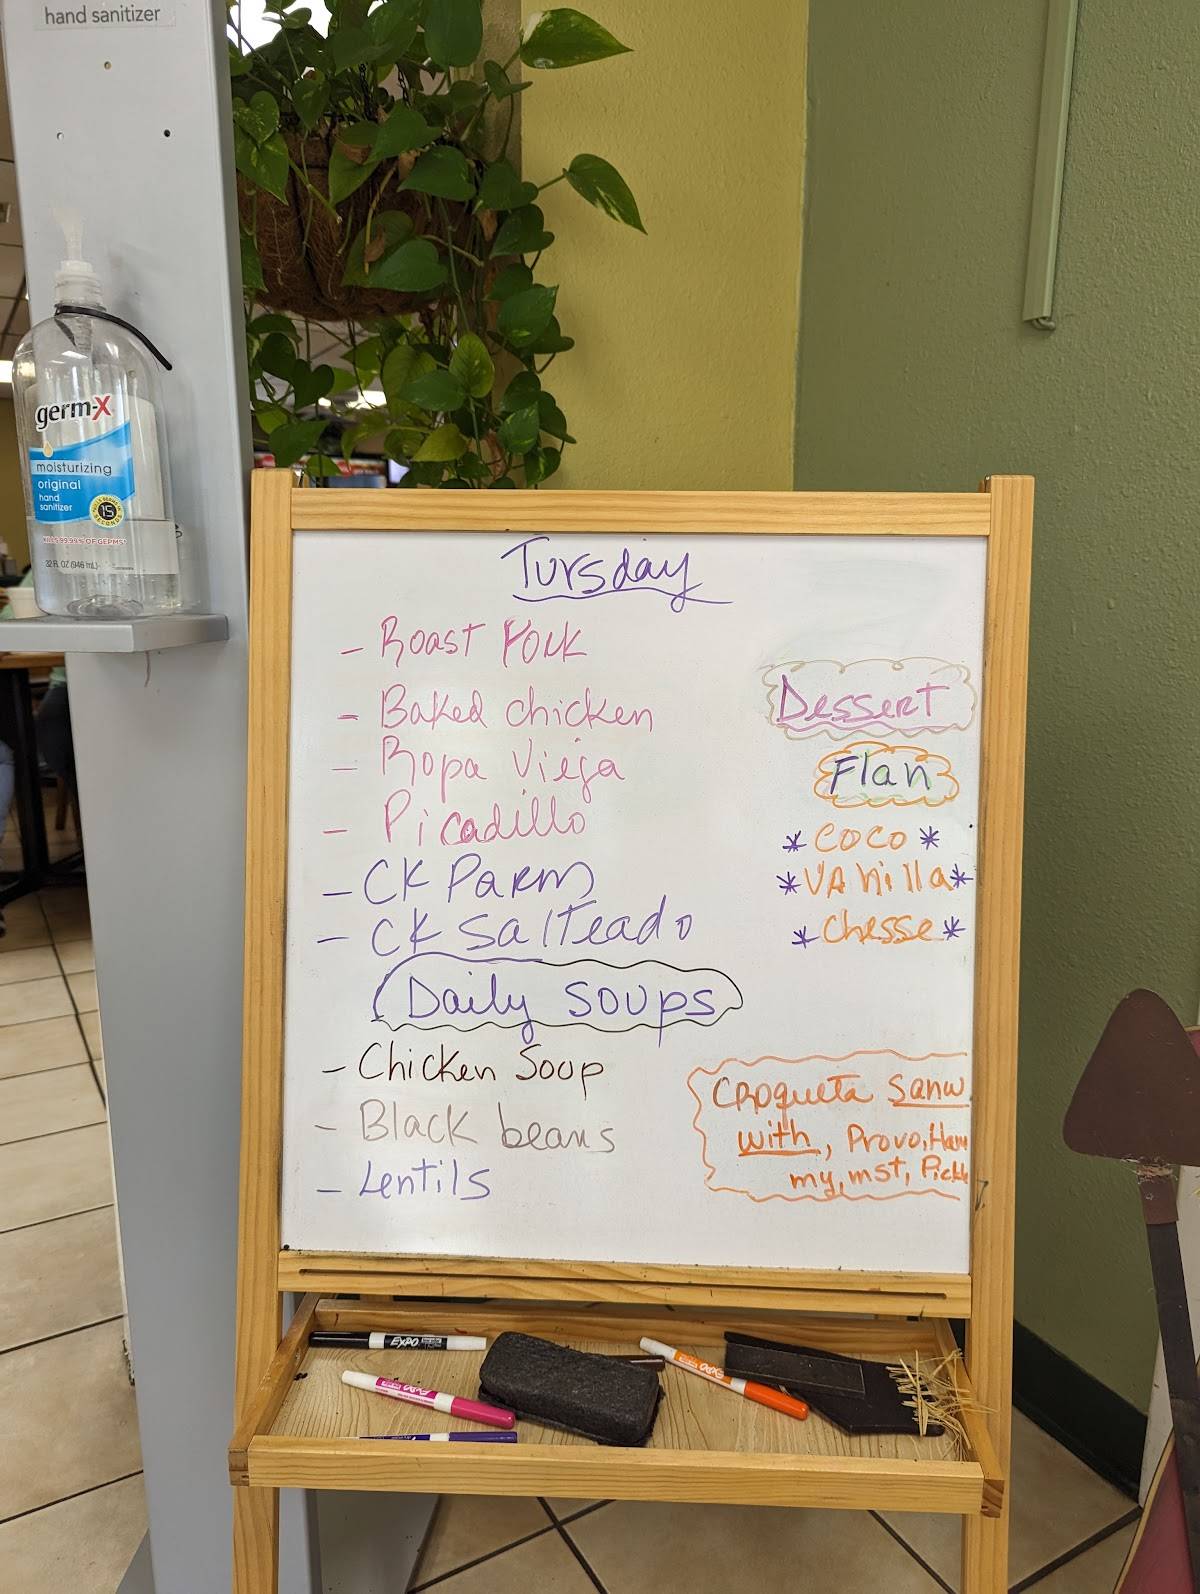 hand sanitizer
germ-x
moisturizing
original
hand
sanitizer
15
SECONDS
KILLS 99.99% OF GERMS*
32 FL OZ (946 mL)
Tursday
- Roast Pork
- Baked chicken
- Ropa Vieja
- Picadillo
- CK Parm
- CK Salteado
Daily Soups
- Chicken Soup
- Black beans
- Lentils
Dessert
Flan
* COCO *
* VAnilla *
* Chesse *
CROqueta Sanw
with, Provo, Ham
my, mst, Pickle
EXPO
EXPO
EXPO